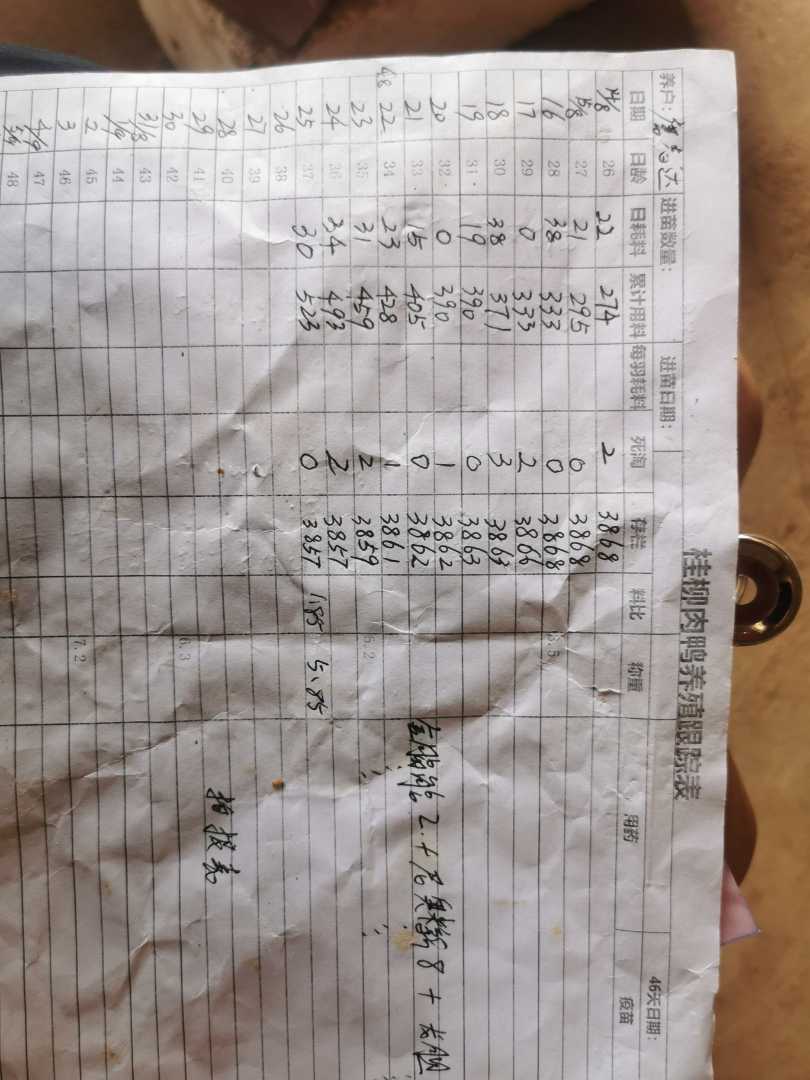 桂柳肉鸭养殖跟踪表
养户： 进苗数量： 进苗日期： 46天日期：
日期 日龄 日耗料 累计用料 每羽耗料 死淘 存栏 料比 称重 用药 疫苗
14/8 26 22 274 2 3868
15/8 27 21 295 0 3868
16 28 38 333 0 3868 3.5
17 29 0 333 2 3866
18 30 38 371 3 3863
19 31 19 390 0 3863
20 32 0 390 1 3862
21 33 15 405 0 3862 2.+ 8+
22 34 23 428 1 3861
23 35 31 459 2 3859 5.2
24 36 34 493 2 3857
25 37 30 523 0 3857 1.85 5.85
26 38
27 39
28 40
29 41 拍报表
30 42 6.3
31/8 43
1/9 44
2 45
3 46 7.2
4/9 47
5/9 48